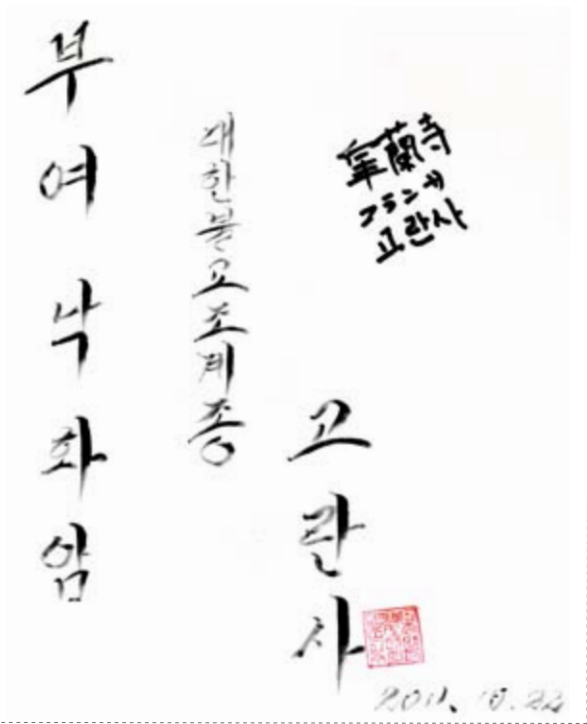 부여낙화암
대한불교조계종
고란사
皐蘭寺
コランサ
고란사
2011. 10. 22